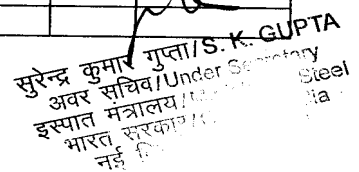 सुरेन्द्र कुमार गुप्ता/S. K. GUPTA
अवर सचिव/Under Secretary
इस्पात मंत्रालय/ Steel
भारत सरकार/
नई